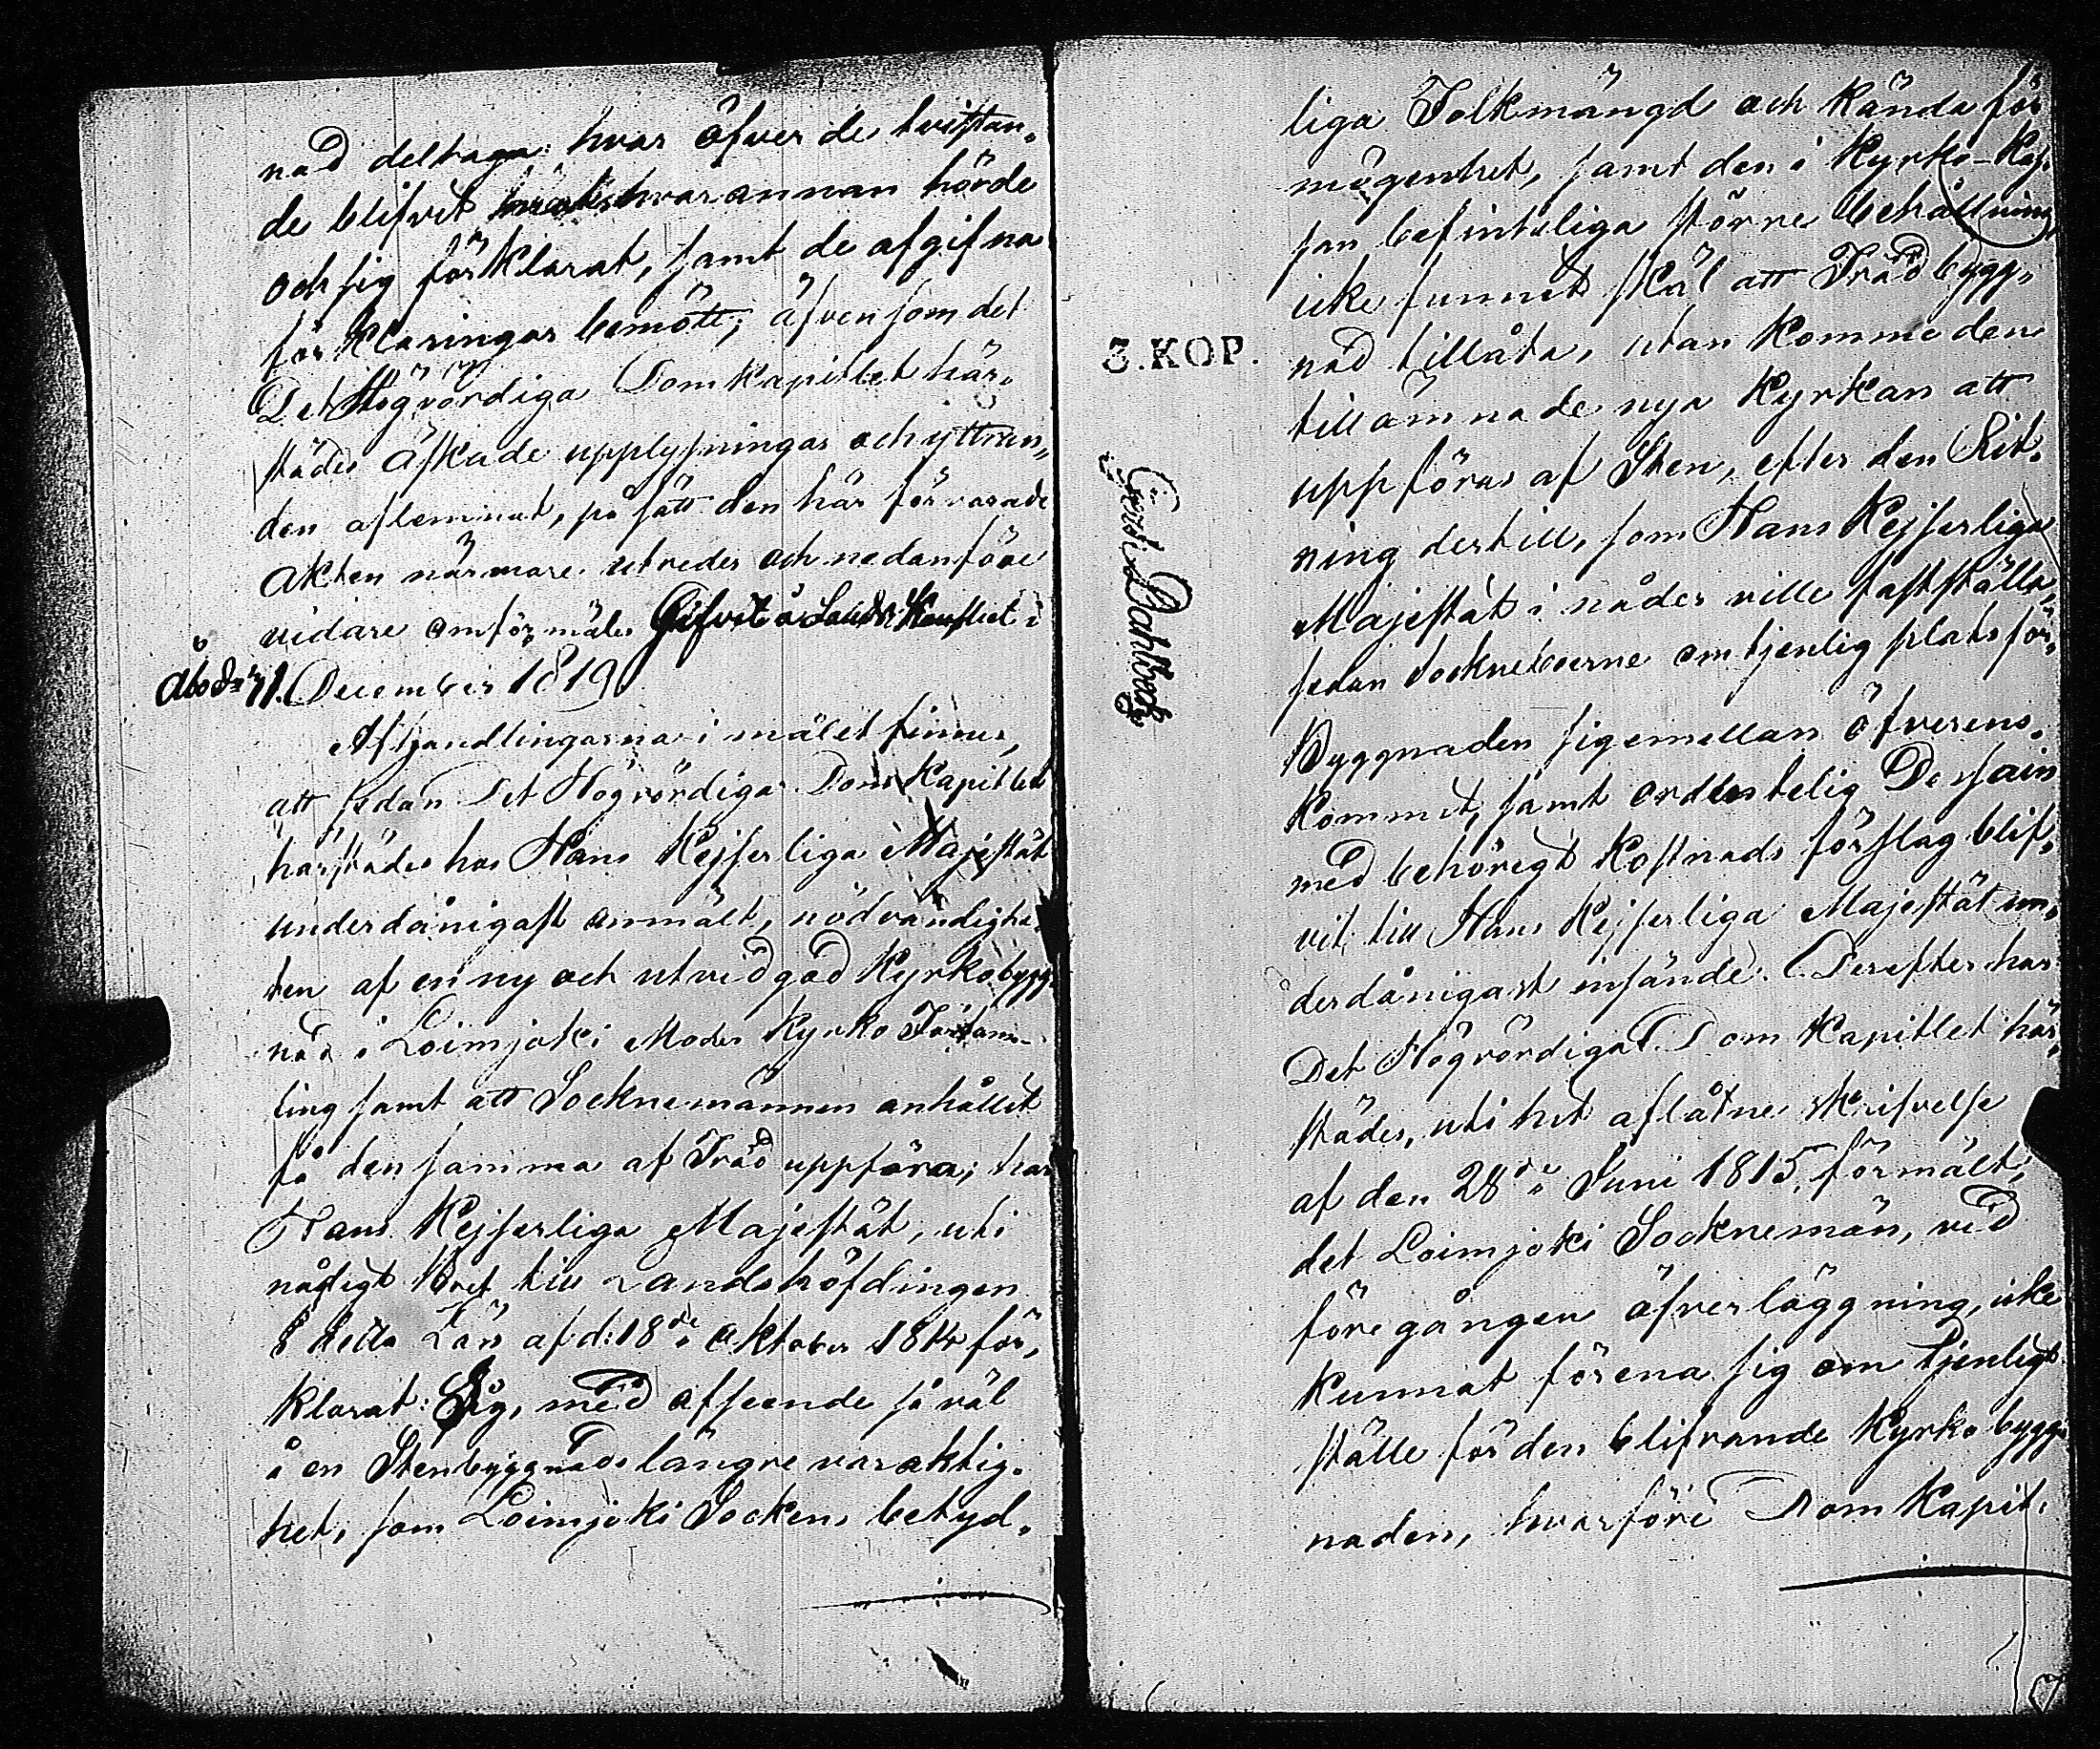 nad deltaga: hvar öfver de tvistan„
de blifvit hvarannan hörde
och sig förklarat, samt de afgifna
förklaringar bemött; äfven som det
Det Högvördiga Domkapitlet här„
städes äskade upplysningar och yttran„
den aflemnat, på sätt den här förvarade
Akten närmare utredes och nedanföre
vidare omförmäles Gifvit å Lands Kansliet i
Åbo d. 11. December 1819.
Afhandlingarna i målet finnes,
att sedan Det Högvördiga Dom Kapitlet
härstädes hos Hans Kejserliga Majestät
underdånigast anmält, nödvändighe„
ten af en ny och utvidgad Kyrkobygg„
nad i Loimjoki Moder Kyrko Församl
ling samt att Socknemännen anhållit
få den samma af Träd uppföra; har
Hans Kejserliga Majestät, uti
nådigt Bref till Landshöfdingen
i detta Län af d: 18de Oktober 1814 för„
klarat: Sig, med afseende så väl
å en Stenbyggnads längre varaktig„
het, som Loimjoki Sockens betyd„
3. KOP.
liga Folkmängd och kända för
mögenhet, samt den i Kyrko-Kas„
san befinteliga större behållning
icke funnit skäl att Trädbygg„
nad tillåta, utan komme den
tillämnade nya Kyrkan att
uppföras af Sten, efter den Rit„
ning dertill, som Hans Kejserliga
Majestät i nåder ville fastställa,
sedan Sockneboerne om tjenlig plats för„
Byggnaden sigemellan öfverens„
kommit, samt ordentelig Dessain
med behörigt Kostnads förslag blif„
vit till Hans Kejserliga Majestät un„
derdånigast insände. Derefter har
Det Högvördiga Dom Kapitlet här„
städes, uti hit aflåtne skrifvelse
af den 28de Juni 1815, förmält,
det Loimjoki Socknemän, vid
föregången öfverläggning, icke
kunnat förena sig om tjenligt
ställe för den blifvande Kyrkobygg„
naden, hvarföre Dom Kapit„